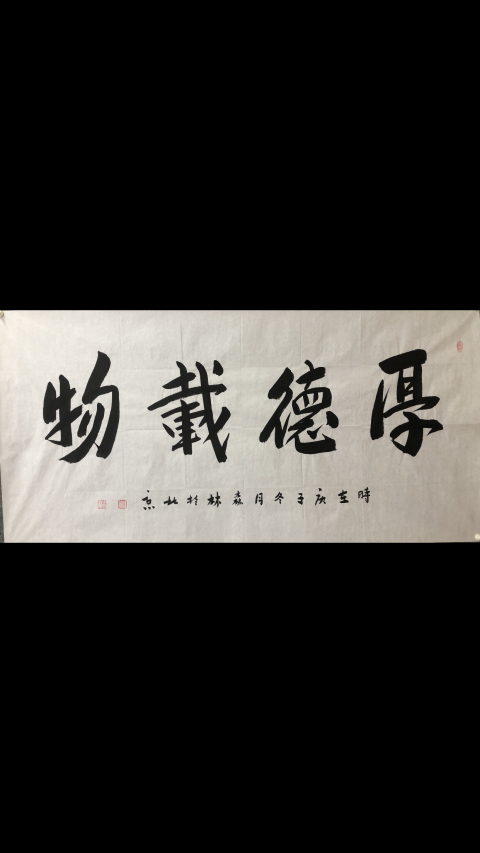 厚德載物
時在庚子冬月森林於北京